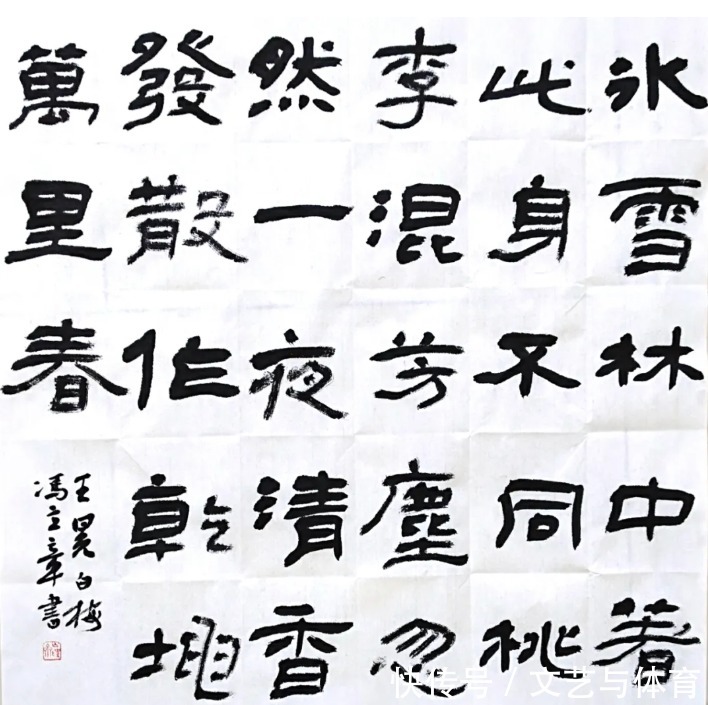 冰雪林中著
此身不同桃
李混芳塵忽
然一夜清香
發散作乾坤
萬里春
王冕白梅
冯立章書
快传号 / 文艺与体育